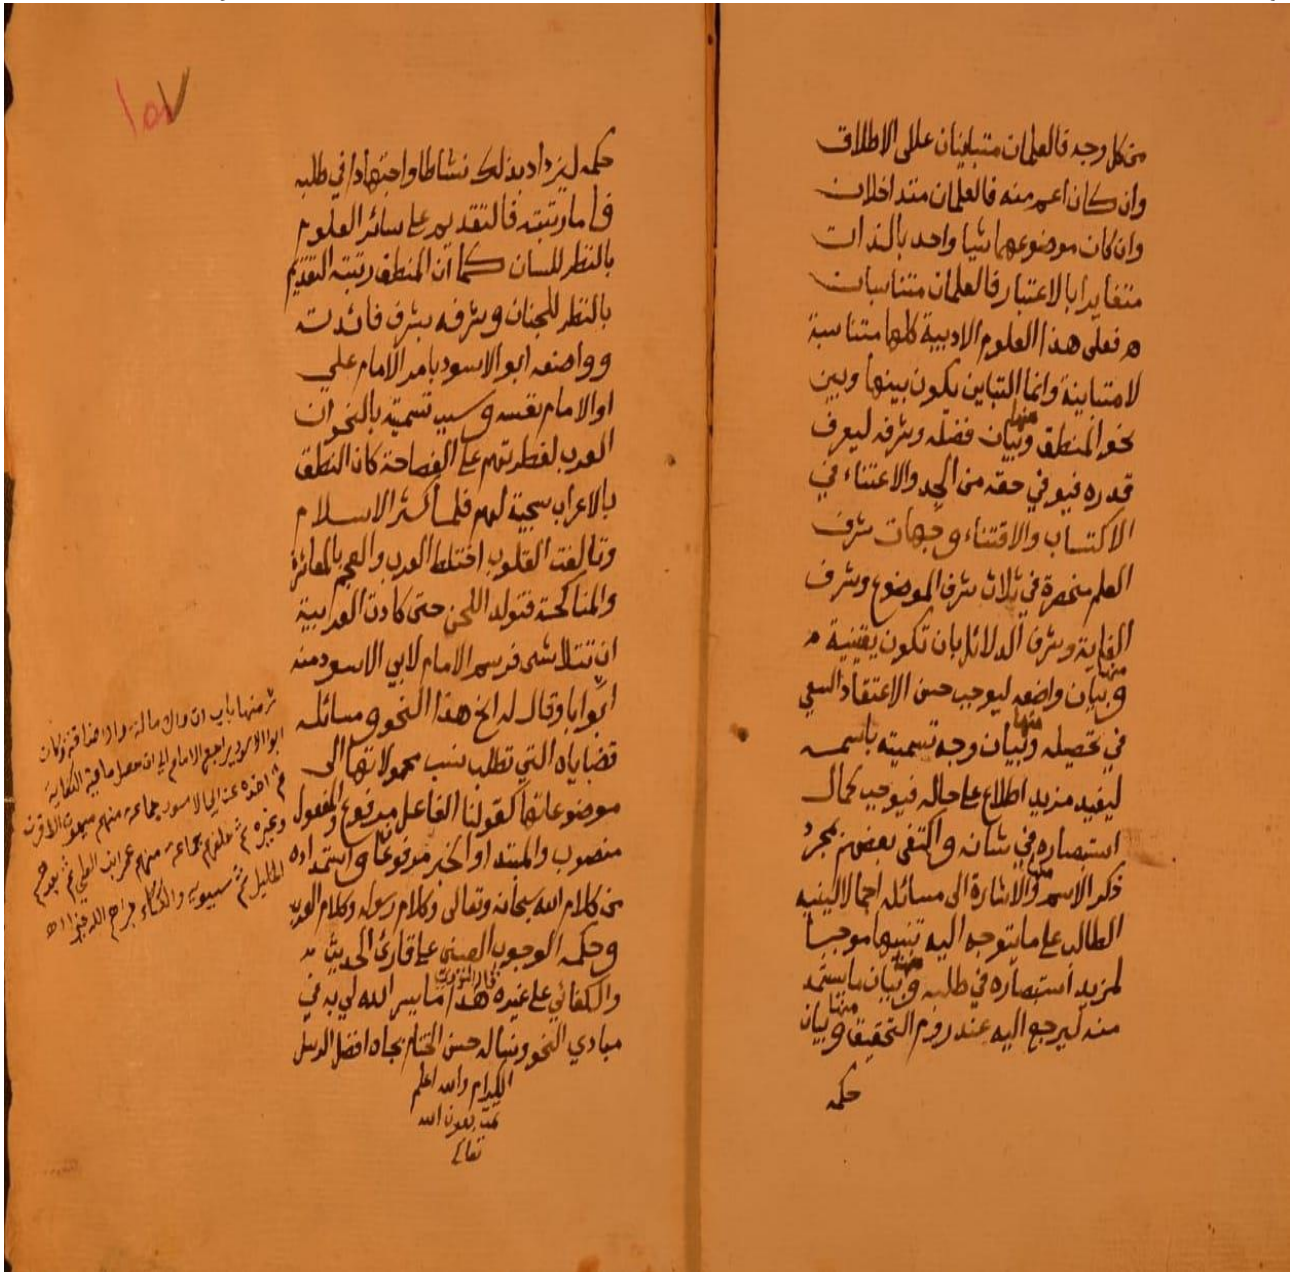 من كل وجه فالعلمان متباينان على الاطلاق
وان كان اعم منه فالعلمان متداخلان
وان كان موضوعهما شيا واحد بالذات
متغايرا بالاعتبار فالعلمان متناسبان
فعلى هذا العلوم الادبية كلها متناسبة
لا متباينة وانما التباين يكون بينها وبين
نحو المنطق ومنها بيان فضله وشرفه ليعرف
قدره فيوفي حقه من الجد والاعتناء في
الاكتساب والاقتناء وجهات شرف
العلم منحصرة في ثلاث شرف الموضوع وشرف
الغاية وشرف الدلائل بان تكون يقينية
ومنها بيان واضعه ليوجب حسن الاعتقاد السعي
في تحصيله ومنها بيان وجه تسميته باسمه
ليفيد مزيد اطلاع على حاله فيوجب كمال
استبصاره في شانه واكتفى بعضهم بمجرد
ذكر الاسم ومنها الاشارة الى مسائله اجمالا لينبه
الطالب على ما يتوجه اليه تنبيها موجبا
لمزيد استبصاره في طلبه ومنها بيان ما يستمد
منه ليرجع اليه عند روم التحقيق ومنها بيان
حكمه
١٥٧
حكمه ليزداد بذلك نشاطا واجتهادا في طلبه
فاما رتبته فالتقديم على سائر العلوم
بالنظر للسان كما ان المنطق رتبته التقديم
بالنظر للجنان وشرفه بشرف فائدته
وواضعه ابو الاسود بامر الامام علي
او الامام نفسه وسبب تسميته بالنحو ان
العرب لفطرتهم على الفصاحة كان النطق
بالاعراب سجية لهم فلما كثر الاسلام
وتالفت القلوب اختلط العرب والعجم بالمعاشرة
والمناكحة فتولد اللحن حتى كادت العربية
ان تتلاشى فرسم الامام لابي الاسود منه
ابوابا وقال له انح هذا النحو ومسائله
قضاياه التي تطلب نسب محمولاتها الى
موضوعاتها كقولنا الفاعل مرفوع والمفعول
منصوب والمبتدا والخبر مرفوعان واستمداده
من كلام الله سبحانه وتعالى وكلام رسوله وكلام العرب
وحكمه الوجوب العيني على قارئ الحديث
والكفائي على غيره هذا ما يسر الله لي به في
مبادي النحو ونساله حسن الختام بجاه افضل الرسل
الكرام والله اعلم
تمت بعون الله
تعالى
ثم منها باب ان والامالة والاضافة وكان
ابو الاسود يراجع الامام الى ان حصل ما فيه الكفاية
ثم اخذه عن ابي الاسود جماعة منهم ميمون الاقرن
وغيره ثم خلفهم جماعة منهم عمرو ابن العلي ثم بعدهم
الخليل ثم سيبويه والكسائي